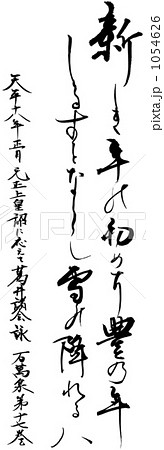 新しき年の初めに豊の年
しるすとならし雪の降れるハ
天平十八年正月元正上皇詔に応えて葛井諸会詠 万葉集第十七巻
pixta.jp - 1054626